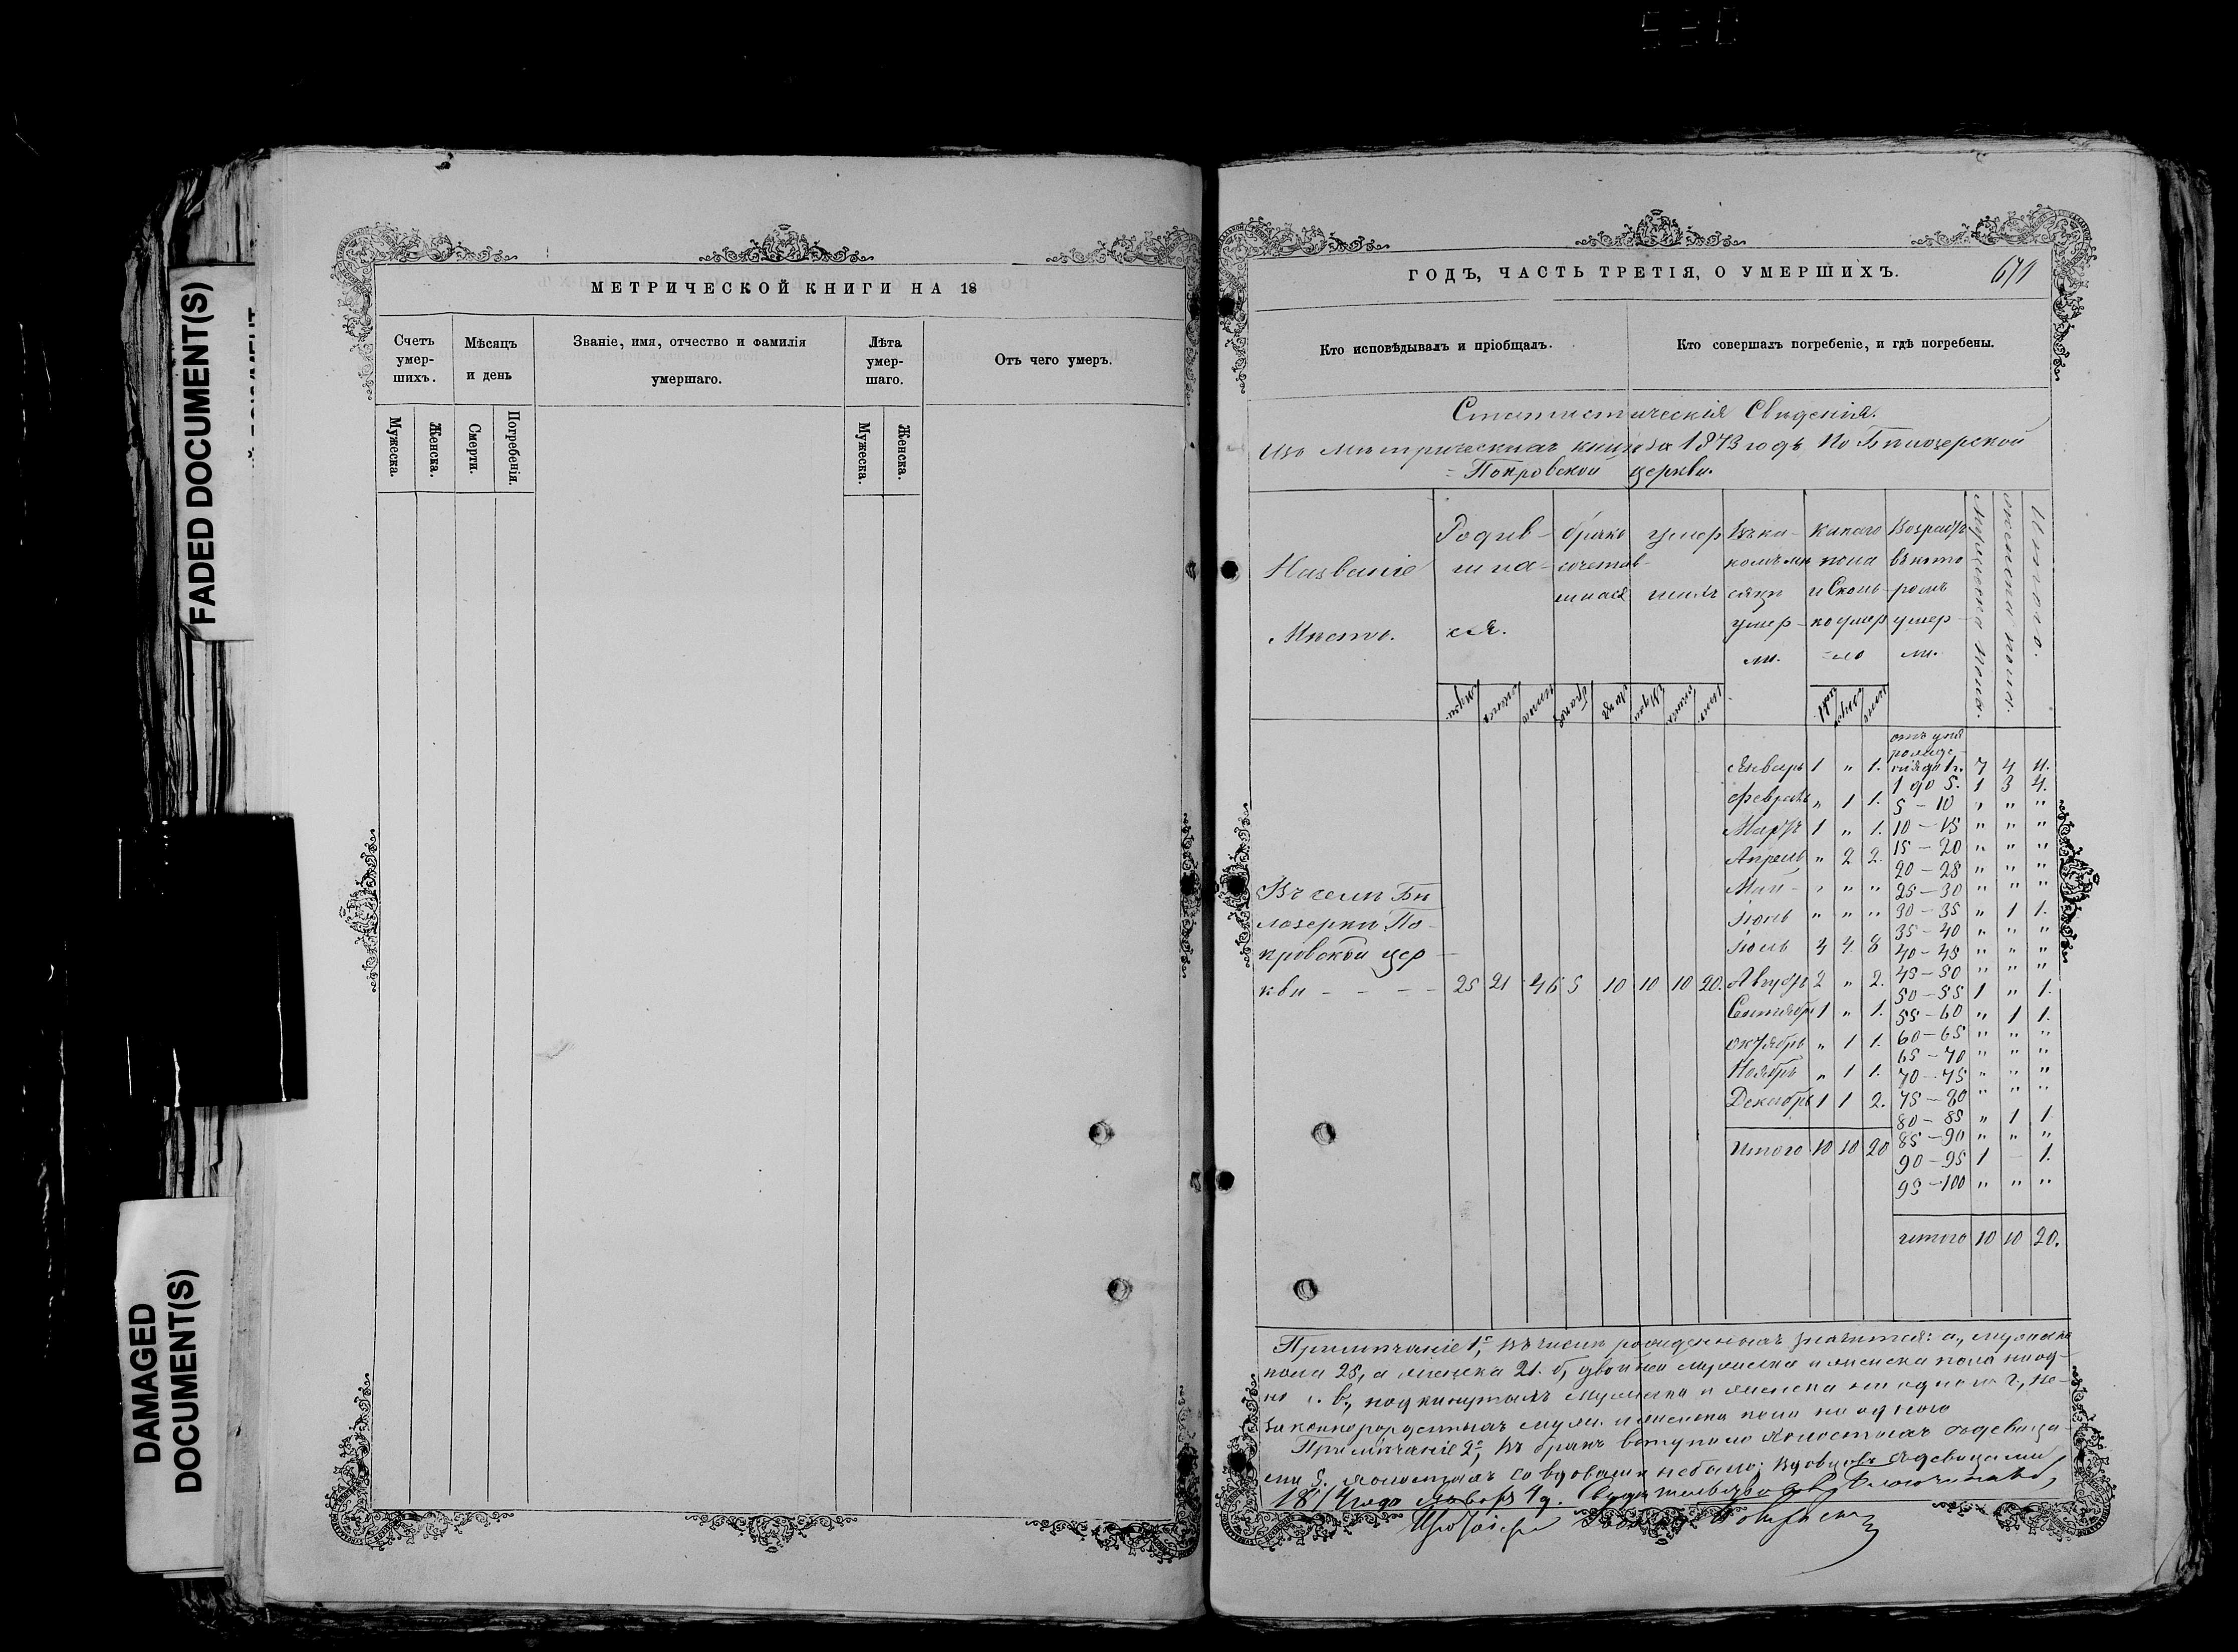 FADED DOCUMENT(S)
DAMAGED
DOCUMENT(S)
МЕТРИЧЕСКОЙ КНИГИ НА 18
Счетъ
умер-
шихъ.
Мѣсяцъ
и день
Званіе, имя, отчество и фамилія
умершаго.
Лѣта
умер-
шаго.
Отъ чего умеръ.
Мужеска.
Женска.
Смерти.
Погребенія.
Мужеска.
Женска.
ГОДЪ, ЧАСТЬ ТРЕТІЯ, О УМЕРШИХЪ.
Кто исповѣдывалъ и пріобщалъ.
Кто совершалъ погребеніе, и гдѣ погребены.
Статистическія Свѣденія.
Изъ Метрическихъ книгъ за 1873 годъ По Бѣлозерской
Покровской церкви.
Названіе
Мѣсто.
Родив-
шиа-
ся.
брако
сочетав-
шиася
умер
шихъ
Въ ка-
комъ мѣ
сяцѣ
умер-
ли.
Какого
пола
и Сколь-
ко умер
ло
Возрастъ
въ кото
ромъ
умер-
ли.
Мужеска пола.
Женска пола.
Итого.
отъ дня
рожде-
нія до 1 г. 7 4 11.
1 до 5. 1 3 4.
5 - 10 " " "
10 - 15 " " "
15 - 20 " " "
20 - 25 " " "
25 - 30 " " "
30 - 35 " 1 1.
35 - 40 " " "
40 - 45 " " "
45 - 50 " " "
50 - 55 1 " 1.
55 - 60 " 1 1.
60 - 65 " " "
65 - 70 " " "
70 - 75 " " "
75 - 80 " " "
80 - 85 " 1 1
85 - 90 " " "
90 - 95 1 - 1.
95 - 100 " " "
итого 10 10 20.
Январь 1 " 1.
Февраль " 1 1.
Мартъ 1 " 1.
Апрель " 2 2.
Май - " " "
Іюнь " " "
Іюль 4 4 8
Августъ 2 " 2.
Сентябрь 1 " 1.
Октябрь " 1 1.
Ноябрь " 1 1.
Декабрь 1 1 2.
Итого 10 10 20
Въ селѣ Бѣ
лозерки По-
кровской цер
кви - - - - 25 21 46 5 10 10 10 20.
Примѣчаніе 1е, Въ числѣ рожденныхъ значится: а, мужска
пола 25, а женска 21. б, двойней мужеска и женска пола ни од-
но. в, подкинутыхъ мужеска и женска ни одного г, не-
законнорожденныхъ муж. и женска пола ни одного
Примѣчаніе 2е, Въ бракъ вступило холостыхъ съ девица-
ми 5. холостыхъ со вдовами небыло: вдовцовъ съ девицами